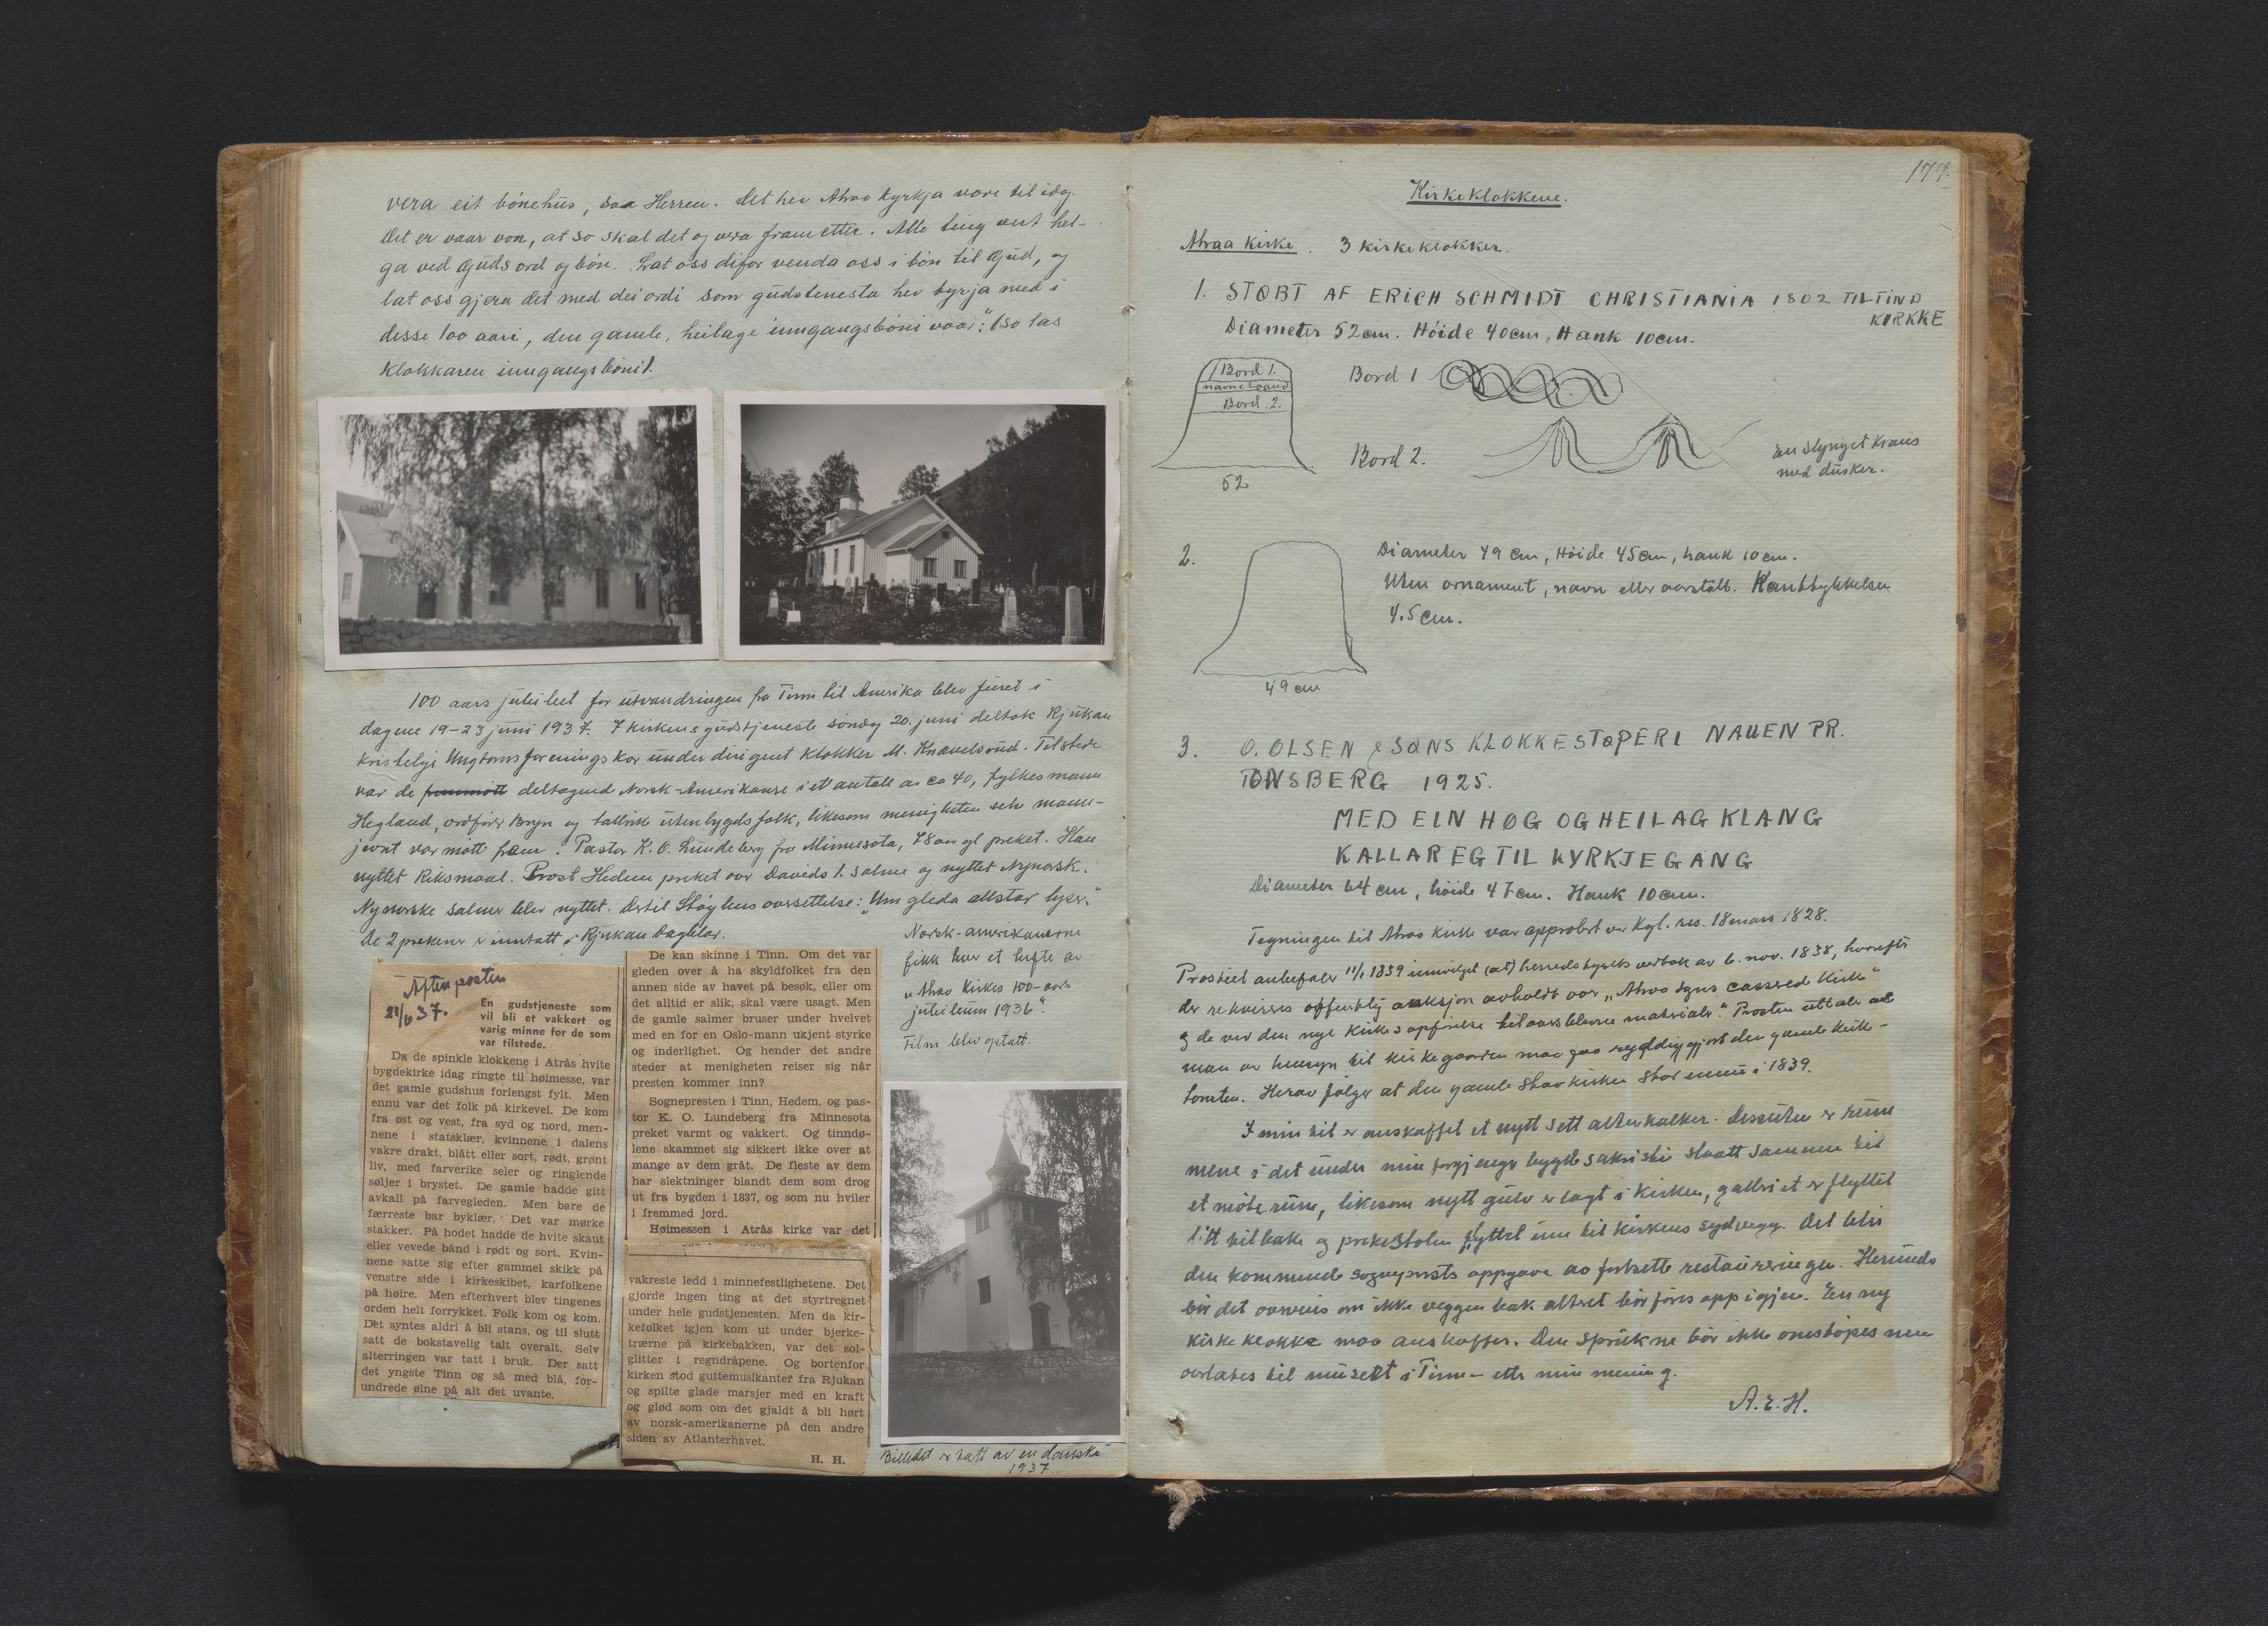 vera eit bönehus, saa Herren. Det hev Atraa kyrkja vore til idag.
Det er vaar von, at so skal det og vera framette. Alle ting vert hel-
ga ved Guds ord og bön. Lat oss difor venda oss i bön til Gud, og
lat oss gjera det med dei ordi som gudstenesta hev byrja med i
desse 100 aari, den gamle, heilage inngangsböni vaar": (so las
klokkaren inngangsböni).
100 aars jubileet for utvandringen fra Tinn til Amerika blev feiret i
dagene 19-23 juni 1937. I kirkens gudstjeneste söndag 20. juni deltok Rjukan
kristelige Ungdomsforenings kor under dirigent klokker M. Knavelsrud. Tilstede
var de deltagend Norsk-Amerikanere i et antall av ca 40, fylkesmann
Hegland, ordförer Bryn og tallrik utenbygds folk, likesom menigheten selv manne-
jevnt var mött frem. Pastor K. O. Lundeberg fra Minnesota, 78 aar gl preket. Han
nyttet Riksmaal. Prost Hedem preket over Davids 1. salme og nyttet Nynorsk.
Nynorske salmer blev nyttet. Dertil Stöylens oversettelse: "Um gleda allstar lyser."
De 2 prekener er inntatt i Rjukan Dagblad.
Norsk-amerikanerne
fikk hver et hefte av
"Atraa Kirkes 100-aars
jubileum 1936".
Film blev optatt.
Aftenposten
21/6 37.
En gudstjeneste som
vil bli et vakkert og
varig minne for de som
var tilstede.
Da de spinkle klokkene i Atrås hvite
bygdekirke idag ringte til høimesse, var
det gamle gudshus forlengst fylt. Men
ennu var det folk på kirkevei. De kom
fra øst og vest, fra syd og nord, men-
nene i statsklær, kvinnene i dalens
vakre drakt, blått eller sort, rødt, grønt
liv, med farverike seler og ringlende
søljer i brystet. De gamle hadde gitt
avkall på farvegleden. Men bare de
færreste bar byklær. Det var mørke
stakker. På hodet hadde de hvite skaut
eller vevede bånd i rødt og sort. Kvin-
nene satte sig efter gammel skikk på
venstre side i kirkeskibet, karfolkene
på høire. Men efterhvert blev tingenes
orden helt forrykket. Folk kom og kom.
Det syntes aldri å bli stans, og til slutt
satt de bokstavelig talt overalt. Selv
alterringen var tatt i bruk. Der satt
det yngste Tinn og så med blå, for-
undrede øine på alt det uvante.
De kan skinne i Tinn. Om det var
gleden over å ha skyldfolket fra den
annen side av havet på besøk, eller om
det alltid er slik, skal være usagt. Men
de gamle salmer bruser under hvelvet
med en for en Oslo-mann ukjent styrke
og inderlighet. Og hender det andre
steder at menigheten reiser sig når
presten kommer inn?
Sognepresten i Tinn, Hedem, og pas-
tor K. O. Lundeberg fra Minnesota
preket varmt og vakkert. Og tinndø-
lene skammet sig sikkert ikke over at
mange av dem gråt. De fleste av dem
har slektninger blandt dem som drog
ut fra bygden i 1837, og som nu hviler
i fremmed jord.
Høimessen i Atrås kirke var det
vakreste ledd i minnefestlighetene. Det
gjorde ingen ting at det styrtregnet
under hele gudstjenesten. Men da kir-
kefolket igjen kom ut under bjerke-
trærne på kirkebakken, var det sol-
glitter i regndråpene. Og bortenfor
kirken stod guttemusikanter fra Rjukan
og spilte glade marsjer med en kraft
og glød som om det gjaldt å bli hørt
av norsk-amerikanerne på den andre
siden av Atlanterhavet.
H. H.
Billedet er tatt av en danske
1937.
177.
Kirkeklokkene.
Atraa kirke. 3 kirkeklokker.
1. STØBT AF ERICH SCHMIDT CHRISTIANIA 1802 TIL TIND
KIRKKE
Diameter 52 cm. Höide 40 cm, Hank 10 cm.
Bord 1.
navnebaand
Bord. 2.
52
Bord 1
Bord 2.
En slynget krans
med dusker.
2.
Diameter 49 cm, Höide 45 cm, hank 10 cm.
Uten ornament, navn eller aarstall. Kanttykkelsen
4.5 cm.
49 cm
3. O. OLSEN & SØNS KLOKKESTØPERI NAUEN PR.
TØNSBERG 1925.
MED EIN HØG OG HEILAG KLANG
KALLAR EG TIL KYRKJEGANG
Diameter 64 cm, höide 47 cm. Hank 10 cm.
Tegningen til Atraa kirke var approbert ved Kgl. res. 18 mars 1828.
Prostiet anbefaler 11/1 1839 innvilget (at) herredsstyrets vedtak av 6. nov. 1838, hvorefter
der rekvireres offentlig auksjon avholdt over "Atraa Sogns casserede Kirke"
og de ved den nye kirkes opförelse tiloversblevne materialer". Prosten uttaler at
man av hensyn til kirkegaarden maa faa ryddiggjort den gamle kirke-
tomten. Herav fölger at den gamle stavkirken stod ennu i 1839.
I min tid er anskaffet et nytt sett alterkalker. Dessuten er rum
mene i det under min forgjenger bygde sakristi slaatt sammen til
et möterum, likesom nytt gulv er lagt i kirken, galleriet er flyttet
litt tilbake og prekestolen flyttet inn til kirkens sydvegg. Det blir
den kommende sogneprests oppgave aa fortsette restaureringen. Herunder
bör det overveies om ikke veggen bak alteret bör föres opp igjen. En ny
kirkeklokke maa anskaffes. Den sprukne bör ikke omstöpes men
overlates til museet i Tinn – etter min mening.
A. E. H.